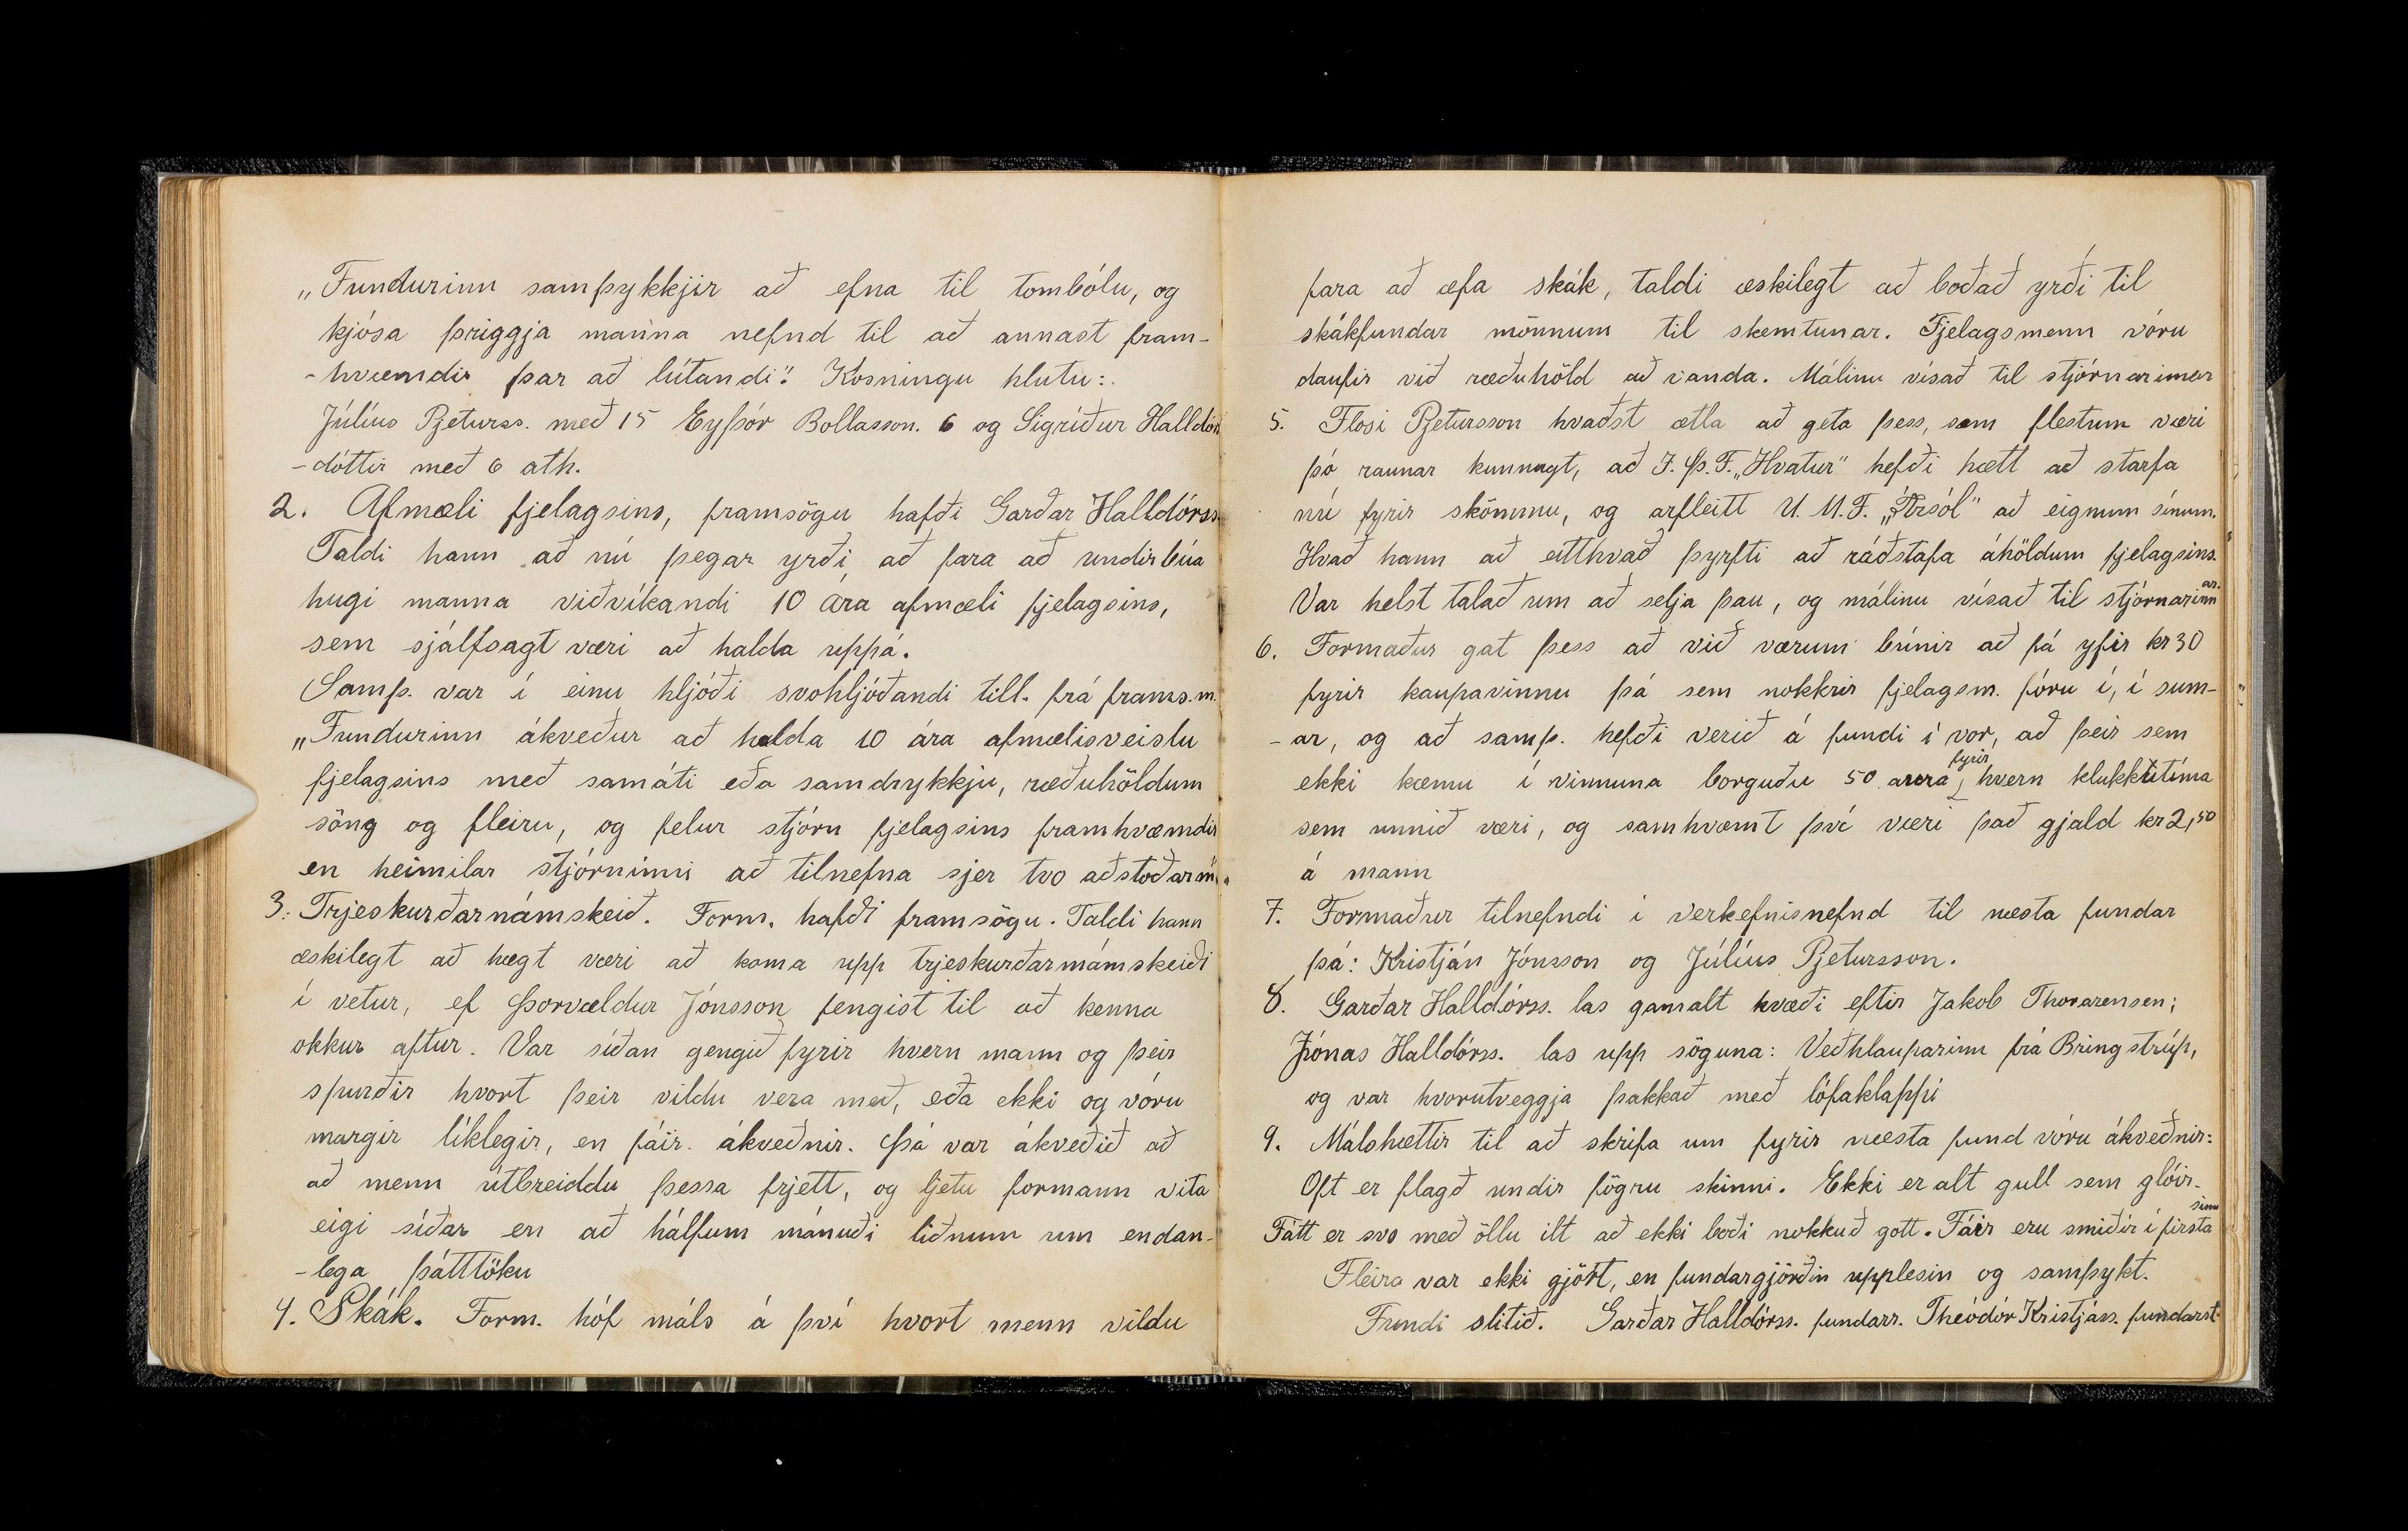 „Fundurinn samþykkjir að efna til tombólu, og
kjósa þriggja manna nefnd til að annast fram-
-hvæmdir þar að lútandi". Kosningu hlutu:
Júlíus Pjeturss. með 15 Eyþór Bollasson. 6 og Sigríður Halldórs
-dóttir með 6 atk.
2. Afmæli fjelagsins, framsögu hafði Garðar Halldórss
Taldi hann að nú þegar yrði að fara að undirbúa
hugi manna viðvíkandi 10 ára afmæli fjelagsins,
sem sjálfsagt væri að halda uppá.
Samþ. var í einu hljóði svohljóðandi till. frá frams.m.
„Fundurinn ákveður að halda 10 ára afmælisveislu
fjelagsins með samáti eða samdrykkju, ræðuhöldum
söng og fleiru, og felur stjórn fjelagsins framhvæmdir
en heimilar stjórninni að tilnefna sjer tvo aðstoðarm"
3. Trjeskurðarnámskeið. Form. hafði framsögu. Taldi hann
æskilegt að hægt væri að koma upp trjeskurðarnámskeiði
í vetur, ef Þorvaldur Jónsson fengist til að kenna
okkur aftur. Var síðan gengið fyrir hvern mann og þeir
spurðir hvort þeir vildu vera með, eða ekki og vóru
margir líklegir, en fáir ákveðnir. Þá var ákveðið að
að menn útbreiddu þessa frjett, og ljetu formann vita
eigi síðar en að hálfum mánuði liðnum um endan-
-lega þátttöku
4. Skák. Form. hóf máls á því hvort menn vildu
fara að æfa skák, taldi æskilegt að boðað yrði til
skákfundar mönnum til skemtunar. Fjelagsmenn vóru
daufir við ræðuhöld að vanda. Málinu vísað til stjórnarinnar
5. Flosi Pjetursson hvaðst ætla að geta þess, sem flestum væri
þó raunar kunnugt, að I. Þ. F. „Hvatur" hefði hætt að starfa
nú fyrir skömmu, og arfleitt U. M. F. „Ársól" að eignum sínum.
Hvað hann að eitthvað þyrfti að ráðstafa áhöldum fjelagsins.
Var helst talað um að selja þau, og málinu vísað til stjórnarinnar.
6. Formaður gat þess að við værum búnir að fá yfir kr 30
fyrir kaupavinnu þá sem nokkrir fjelagsm. fóru í, í sum-
-ar, og að samþ. hefði verið á fundi í vor, að þeir sem
ekki kæmu í vinnuna borguðu 50 aura fyrir hvern klukkutíma
sem unnið væri, og samhvæmt því væri það gjald kr 2,50
á mann
7. Formaður tilnefndi í verkefnisnefnd til næsta fundar
þá: Kristján Jónsson og Júlíus Pjetursson.
8. Garðar Halldórss. las gamalt kvæði eftir Jakob Thorarensen;
Jónas Halldórss. las upp söguna: Veðhlauparinn frá Bringstrúp,
og var hvorutveggja þakkað með lófaklappi
9. Málshættir til að skrifa um fyrir næsta fund vóru ákveðnir:
Oft er flagð undir fögru skinni. Ekki er alt gull sem glóir.
Fátt er svo með öllu ilt að ekki boði nokkuð gott. Fáir eru smiðir í firsta sinn
Fleira var ekki gjört, en fundargjörðin upplesin og samþykt.
Fundi slitið. Garðar Halldórss. fundarr. Theódór Kristjáss. fundarst.